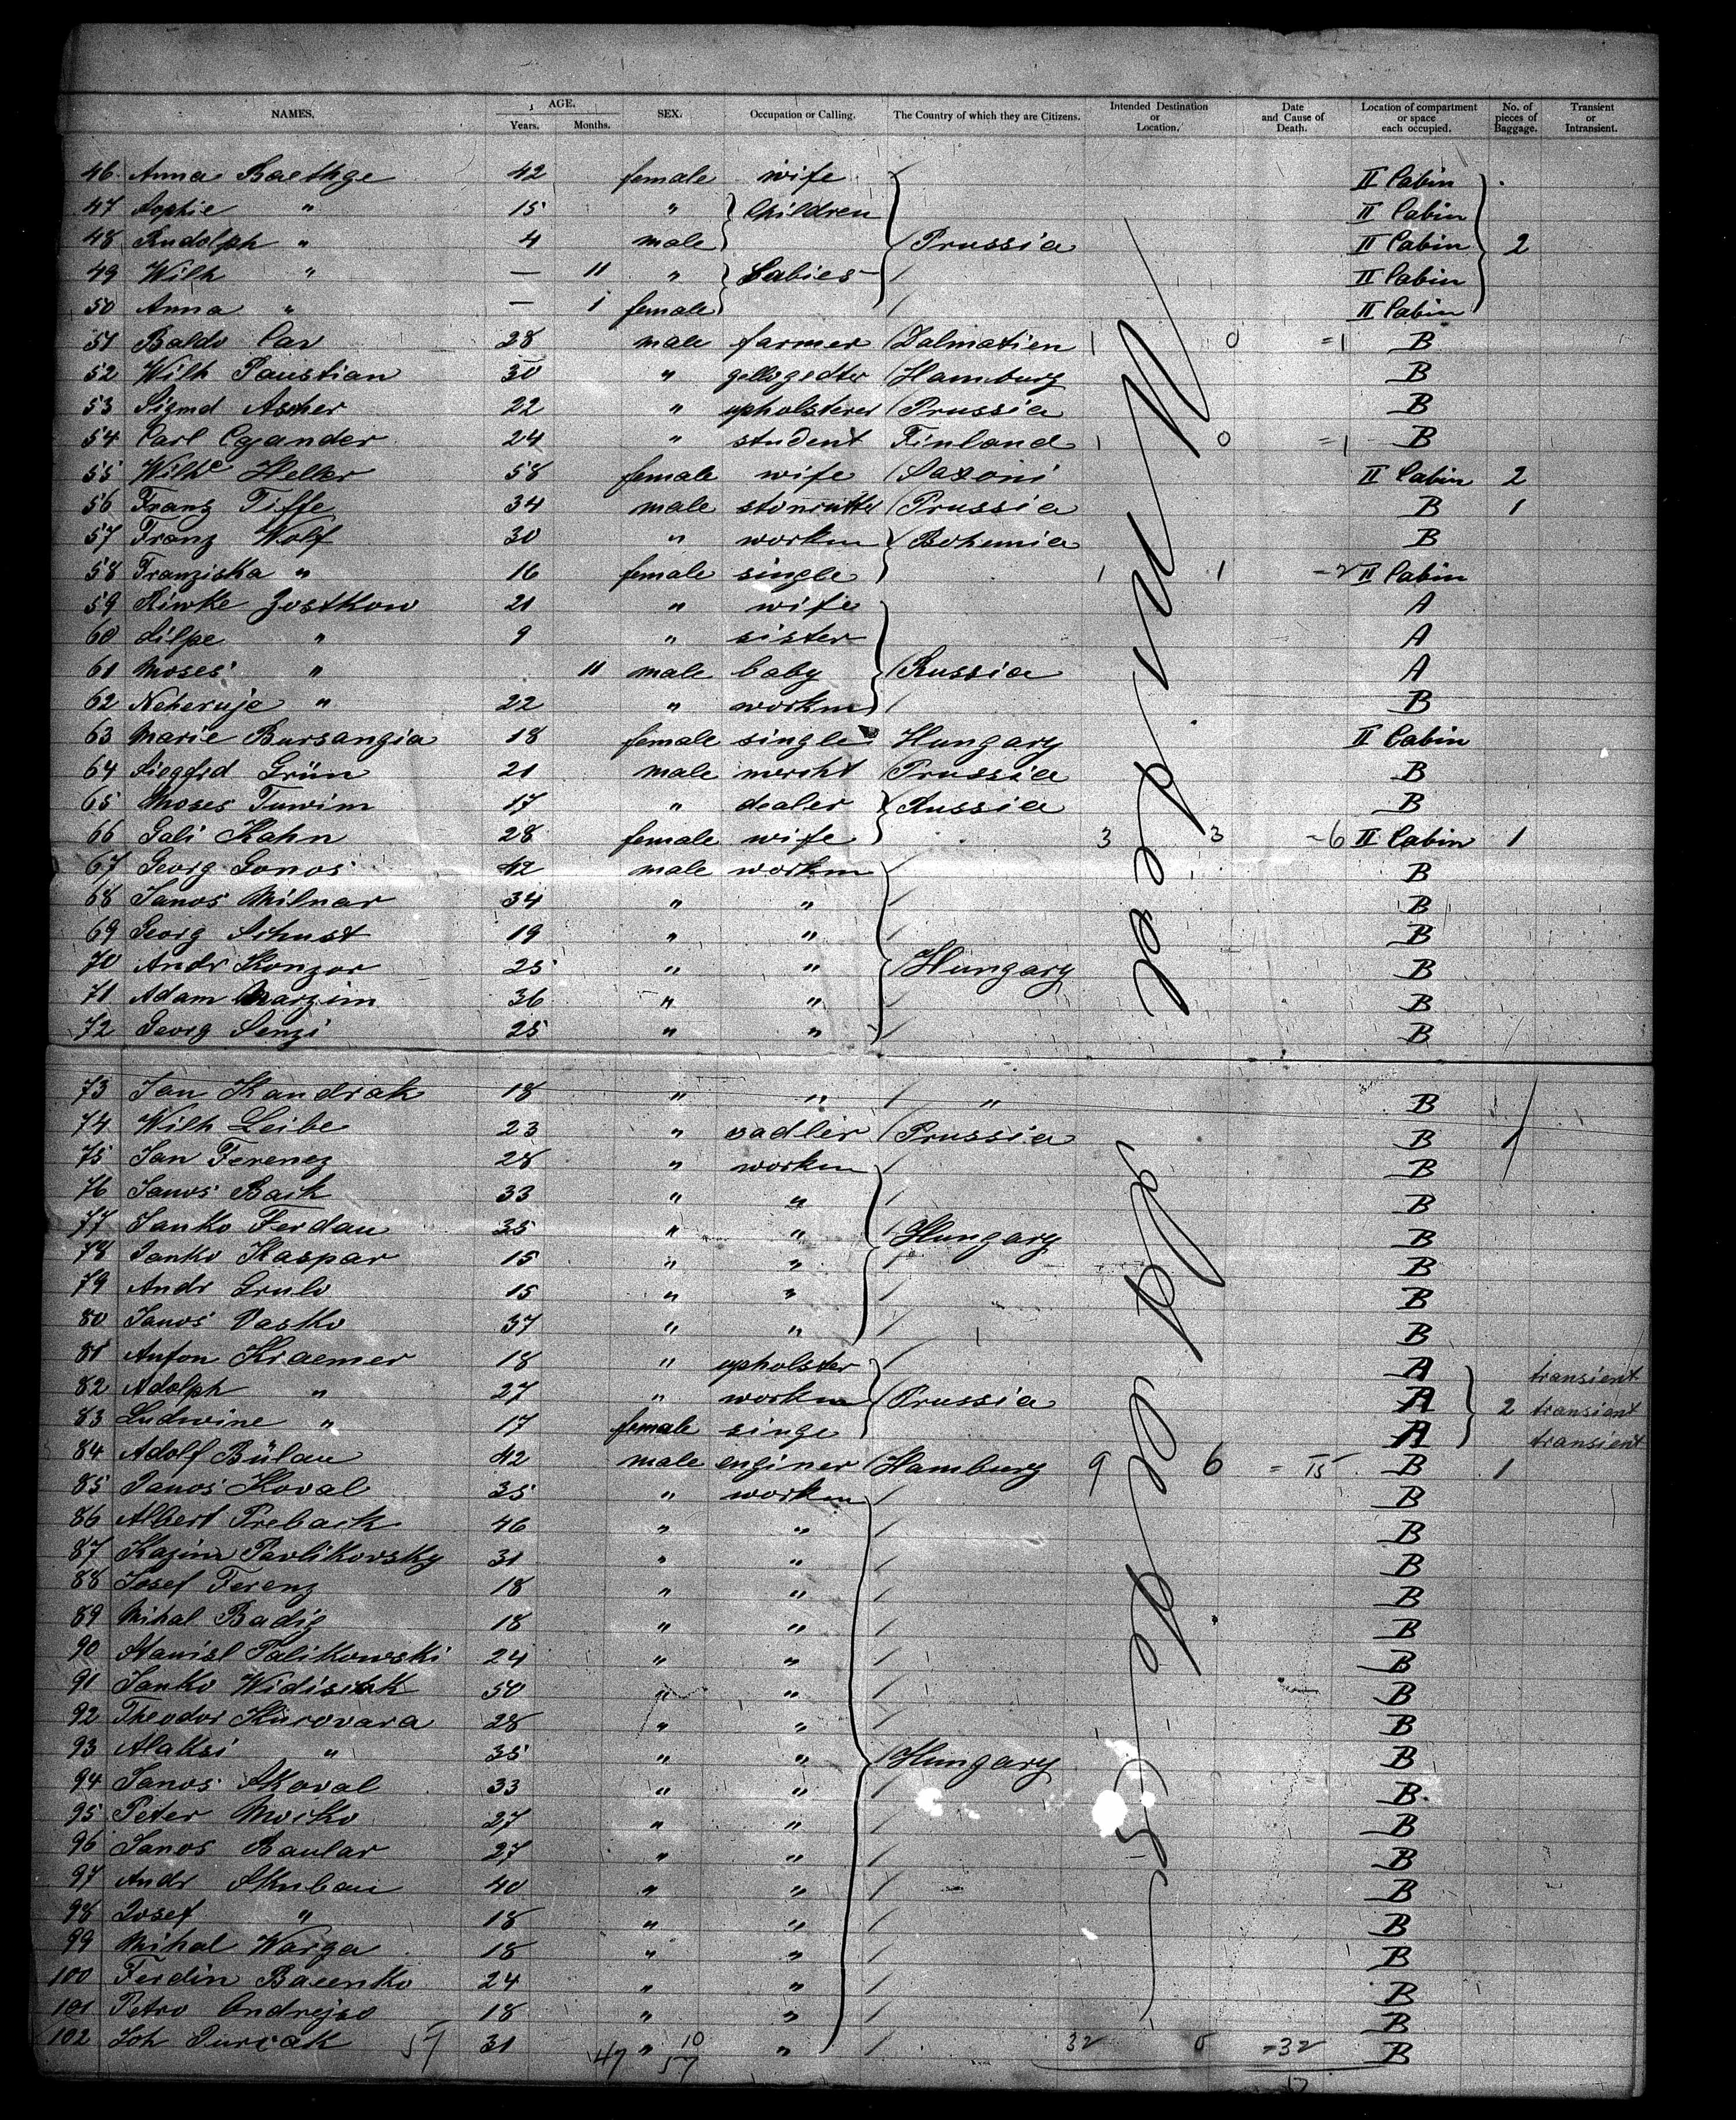 NAMES. AGE. Years. Months. SEX. Occupation or Calling. The Country of which they are Citizens. Intended Destination or Location. Date and Cause of Death. Location of compartment or space each occupied. No. of pieces of Baggage. Transient or Intransient.
46 Anna Baethge 42 female wife II Cabin
47 Sophie " 15 " Children II Cabin
48 Rudolph " 4 male Prussia II Cabin 2
49 Wilh " — 11 " Babies II Cabin
50 Anna " — 1 female II Cabin
51 Baldo Car 28 male farmer Dalmatien 1 0 =1 B
52 Wilh Paustian 30 " Hamburg B
53 Sigmd Ascher 22 " upholsterer Prussia B
54 Carl Cygander 24 " student Finland 1 0 =1 B
55 Wilhe Heller 58 female wife Saxoni II Cabin 2
56 Franz Tiffe 34 male stoncutter Prussia B 1
57 Franz Wolf 30 " workm Bohemia B
58 Franziska " 16 female single 1 1 =2 II Cabin
59 Riwke Jostkow 21 " wife A
60 Lilpe " 9 " sister A
61 Moses " 11 male baby Russia A
62 Neheruje " 22 " workm B
63 Marie Bursangia 18 female single Hungary II Cabin
64 Siegfrd Grün 21 male mercht Prussia B
65 Moses Tuwim 17 " dealer Russia B
66 Gali Kahn 28 female wife 3 3 =6 II Cabin 1
67 Georg Gonos 42 male workm B
68 Janos Milnar 34 " " B
69 Georg Schust 19 " " B
70 Andr Konzor 25 " " Hungary B
71 Adam Marzim 36 " " B
72 Georg Senzi 25 " " B
73 Jan Kandrak 18 " " " B
74 Wilh Leibe 23 " sadler Prussia B 1
75 Jan Ferencz 28 " workm B
76 Janos Back 33 " " B
77 Janko Ferdau 35 " " Hungary B
78 Janko Kaspar 15 " " B
79 Andr Grulo 15 " " B
80 Janos Vasko 37 " " B
81 Anton Kraemer 18 " upholster A transient
82 Adolph " 27 " workm Prussia A 2 transient
83 Ludwine " 17 female singe A transient
84 Adolf Bülau 42 male enginer Hamburg 9 6 = 15 B 1
85 Janos Koval 35 " workm B
86 Albert Preback 46 " " B
87 Kazim Pavlikovsky 31 " " B
88 Josef Ferenz 18 " " B
89 Mihal Badig 18 " " B
90 Stanisl Palikowski 24 " " B
91 Janko Widisiak 50 " " B
92 Theodor Kurovara 28 " " B
93 Alaksi " 35 " " Hungary B
94 Janos Skoval 33 " " B
95 Peter Moiko 27 " " B
96 Janos Baular 27 " " B
97 Andr Skuban 40 " " B
98 Josef " 18 " " B
99 Mihal Warga 18 " " B
100 Ferdin Bacenko 24 " " B
101 Petro Andrejso 18 " " B
102 Joh Durcak 57 31 " " 32 0 =32 B
47 10
57